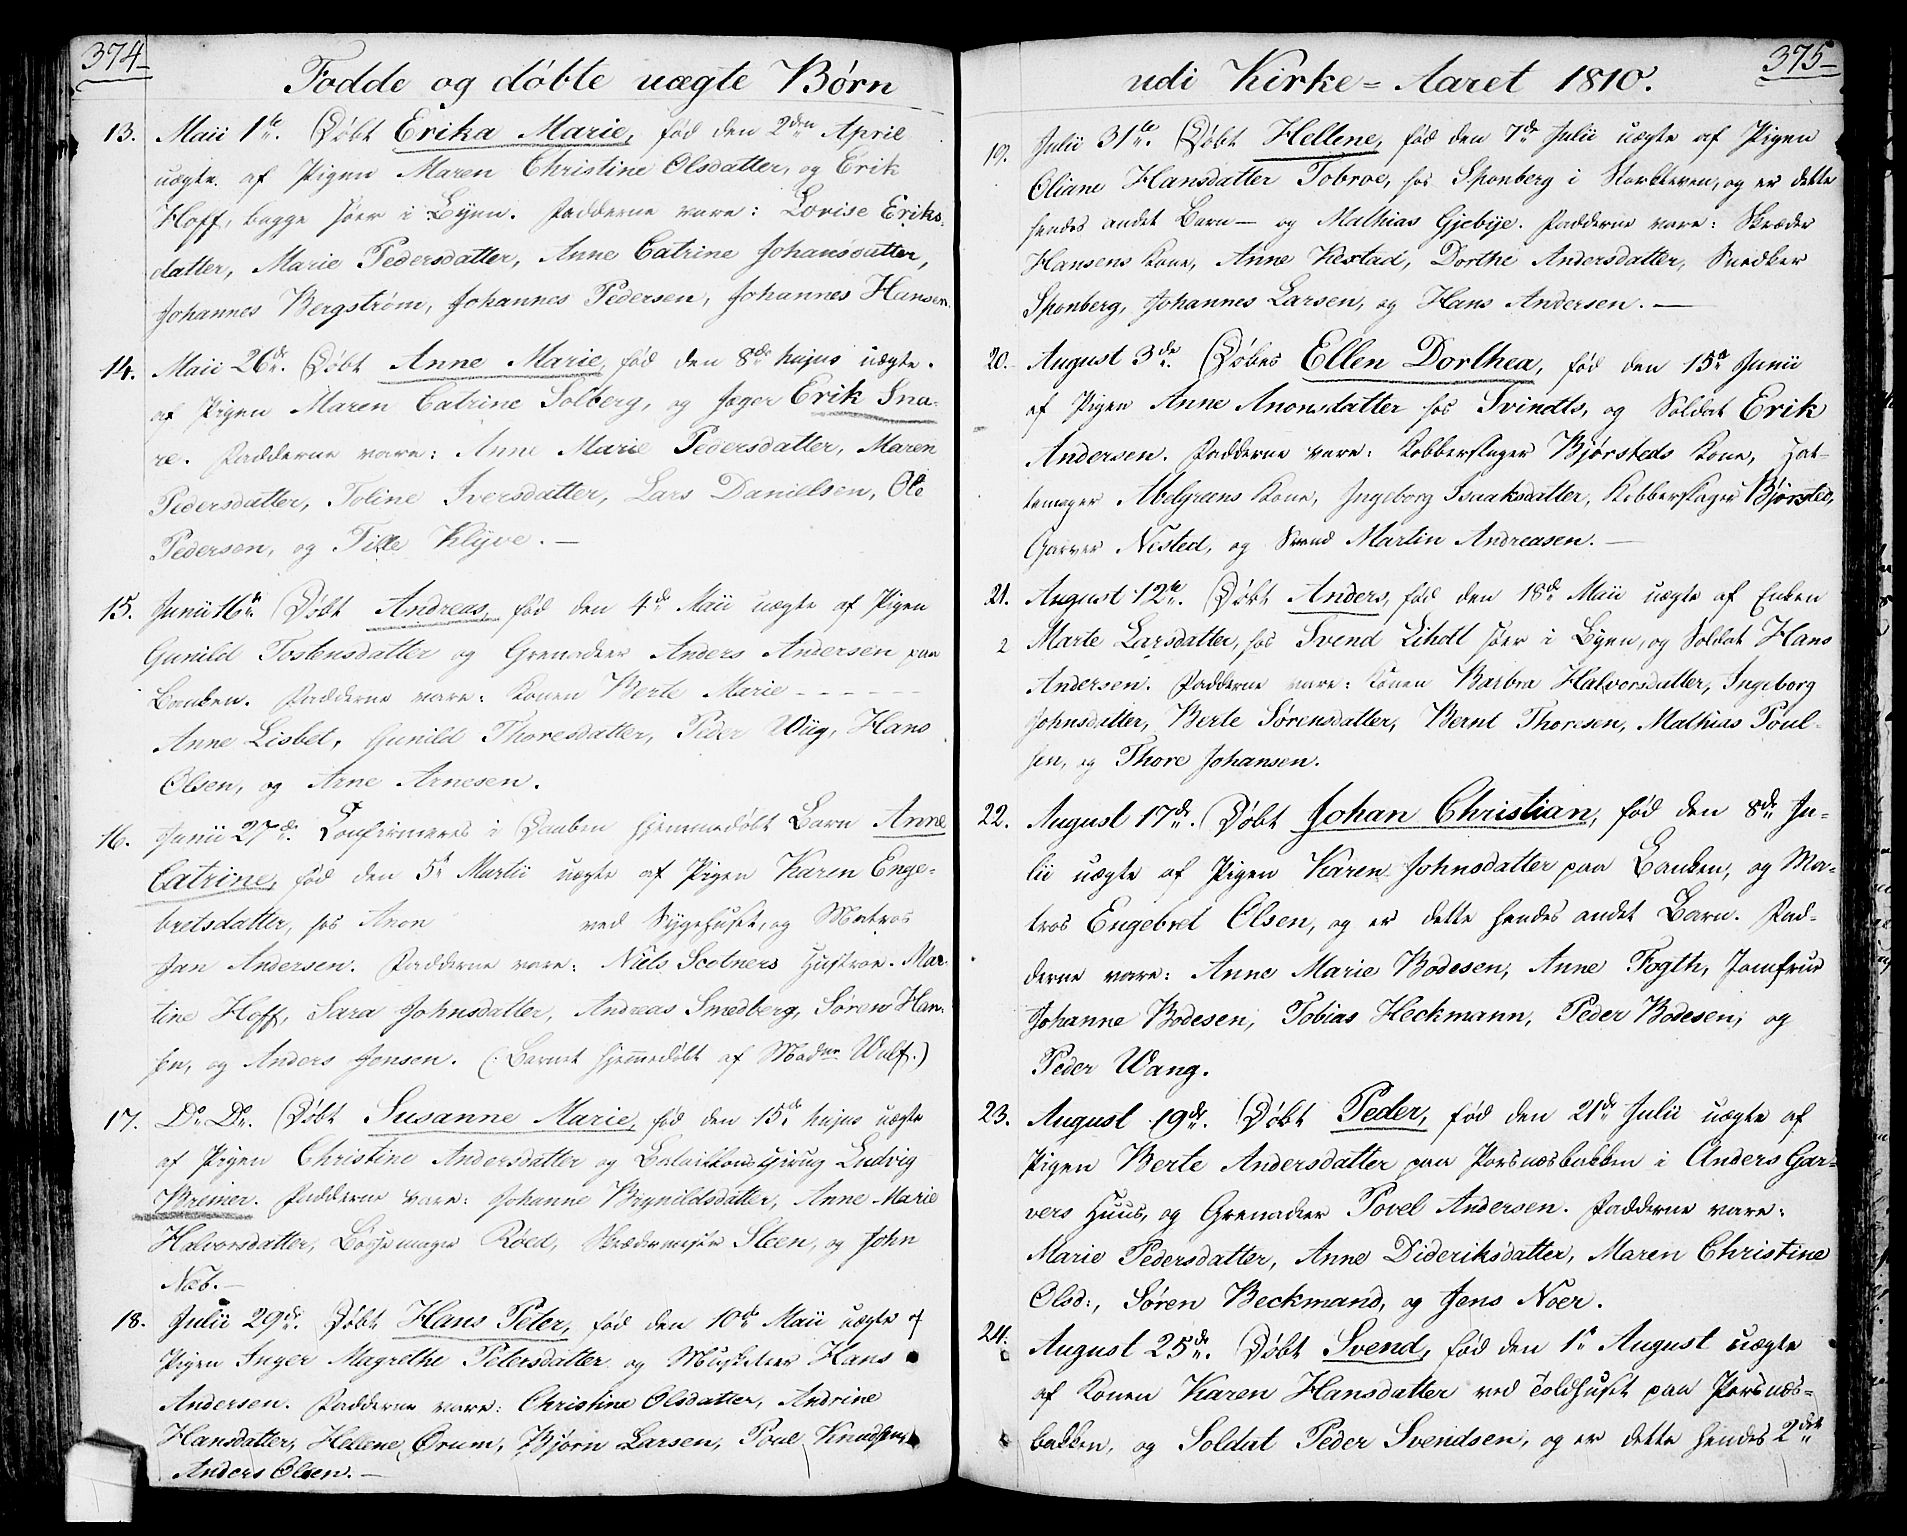 374
Fødde og døbte uægte Børn
13. Maii 1te. Døbt Erika Marie, fød den 2den April
uægte af Pigen Maren Christine Olsdatter, og Erik
Hoff, begge her i Byen. Fadderne vare: Lovise Eriks-
datter, Marie Pedersdatter, Anne Catrine Johansdatter,
Johannes Bergstrøm, Johannes Pedersen, Johannes Hansen.
14. Maii 26de. Døbt Anne Marie, fød den 8de hujus uægte
af Pigen Maren Catrine Solberg, og Jæger Erik Sna-
re. Fadderne vare: Anne Marie Pedersdatter, Maren
Pedersdatter, Toline Iversdatter, Lars Danielsen, Ole
Pedersen, og Tille Klyve. —
15. Junii 16de. Døbt Andreas, fød den 4de Maii uægte af Pigen
Gunild Tostensdatter og Grenadeer Anders Andersen paa
Banken. Fadderne vare: Konen Berte Marie - - - - -
Anne Lisbet, Gunild Thoresdatter, Peder Wiig, Hans
Olsen, og Arne Arnesen.
16. Junii 27de. Confirmeres i Daaben hjemmedøbt Barn Anne
Catrine, fød den 5te Martii uægte af Pigen Karen Enge-
bretsdatter, hos Aron ved Sygehuset, og Matros
Jan Andersen. Fadderne vare: Niels Scotners Hustroe. Mar-
tine Hoff, Sara Johnsdatter, Andreas Smedberg, Søren Han-
sen, og Anders Jensen. (Barnet hjemmedøbt af Madme Wulf.)
17. Do Do. Døbt Susanne Marie, fød den 15de hujus uægte
af Pigen Christine Andersdatter og Bataillonschirug Ludvig
Breiner. Fadderne vare: Johanne Brynildsdatter, Anne Marie
Halvorsdatter, Bøssemager Røed, Skrædermester Steen, og John
Næb. —
18. Julii 29de. Døbt Hans Peter, fød den 10de Maii uægte af
Pigen Inger Magrethe Petersdatter og Musketeer Hans
Andersen. Fadderne vare: Christine Olsdatter, Andrine
Hansdatter, Hellene Ørum, Bjørn Larsen, Poul Knudsen,
Anders Olsen. —
375
udi Kirke-Aaret 1810.
19. Julii 31te. Døbt Hellene, fød den 7de Julii uægte af Pigen
Oliane Hansdatter Tobroe, hos Sponberg i Storkleven, og er dette
hendes andet Barn — og Mathias Gjebye. Fadderne vare: Skræder
Hansens Kone, Anne Kerstad, Dorthe Andersdatter, Snedker
Sponberg, Johannes Larsen, og Hans Andersen. —
20. August 3de. Døbes Ellen Dorthea, fød den 15de Junii
af Pigen Anne Anonsdatter hos Svindts, og Soldat Erik
Andersen. Fadderne vare: Kobberslager Bjørsteds Kone, Hat-
temager Abelgreens Kone, Ingeborg Isaaksdatter, Kobberslager Bjørsted,
Garver Nisted, og Svend Martin Andreasen. —
21. August 12te. Døbt Anders, fød den 18de Maii uægte af Enken
2 Marte Larsdatter, hos Svend Liholt her i Byen, og Soldat Hans
Andersen. Fadderne vare: Konen Barbra Halvorsdatter, Ingeborg
Johnsdatter, Berte Sørensdatter, Bernt Thoresen, Mathias Poul-
sen, og Thore Johansen.
22. August 17de. Døbt Johan Christian, fød den 8de Ju-
lii uægte af Pigen Karen Johnsdatter paa Banken, og Ma-
tros Engebret Olsen, og er dette hendes andet Barn. Fad-
derne vare: Anne Marie Bodesen, Anne Fogth, Jomfrue
Johanne Bodesen, Tobias Heckmann, Peder Bodesen, og
Peder Wang.
23. August 19de. Døbt Peder, fød den 21de Julii uægte af
Pigen Berte Andersdatter paa Porsnæsbakken i Anders Gar-
vers Huus, og Grenadeer Povel Andersen. Fadderne vare:
Marie Pedersdatter, Anne Dideriksdatter, Maren Christine
Olsd:, Søren Beckmand, og Jens Noer.
24. August 25de. Døbt Svend, fød den 1te August uægte
af Konen Karen Hansdatter ved Toldhuset paa Porsnæs-
bakken, og Soldat Peder Svendsen, og er dette hendes 2det